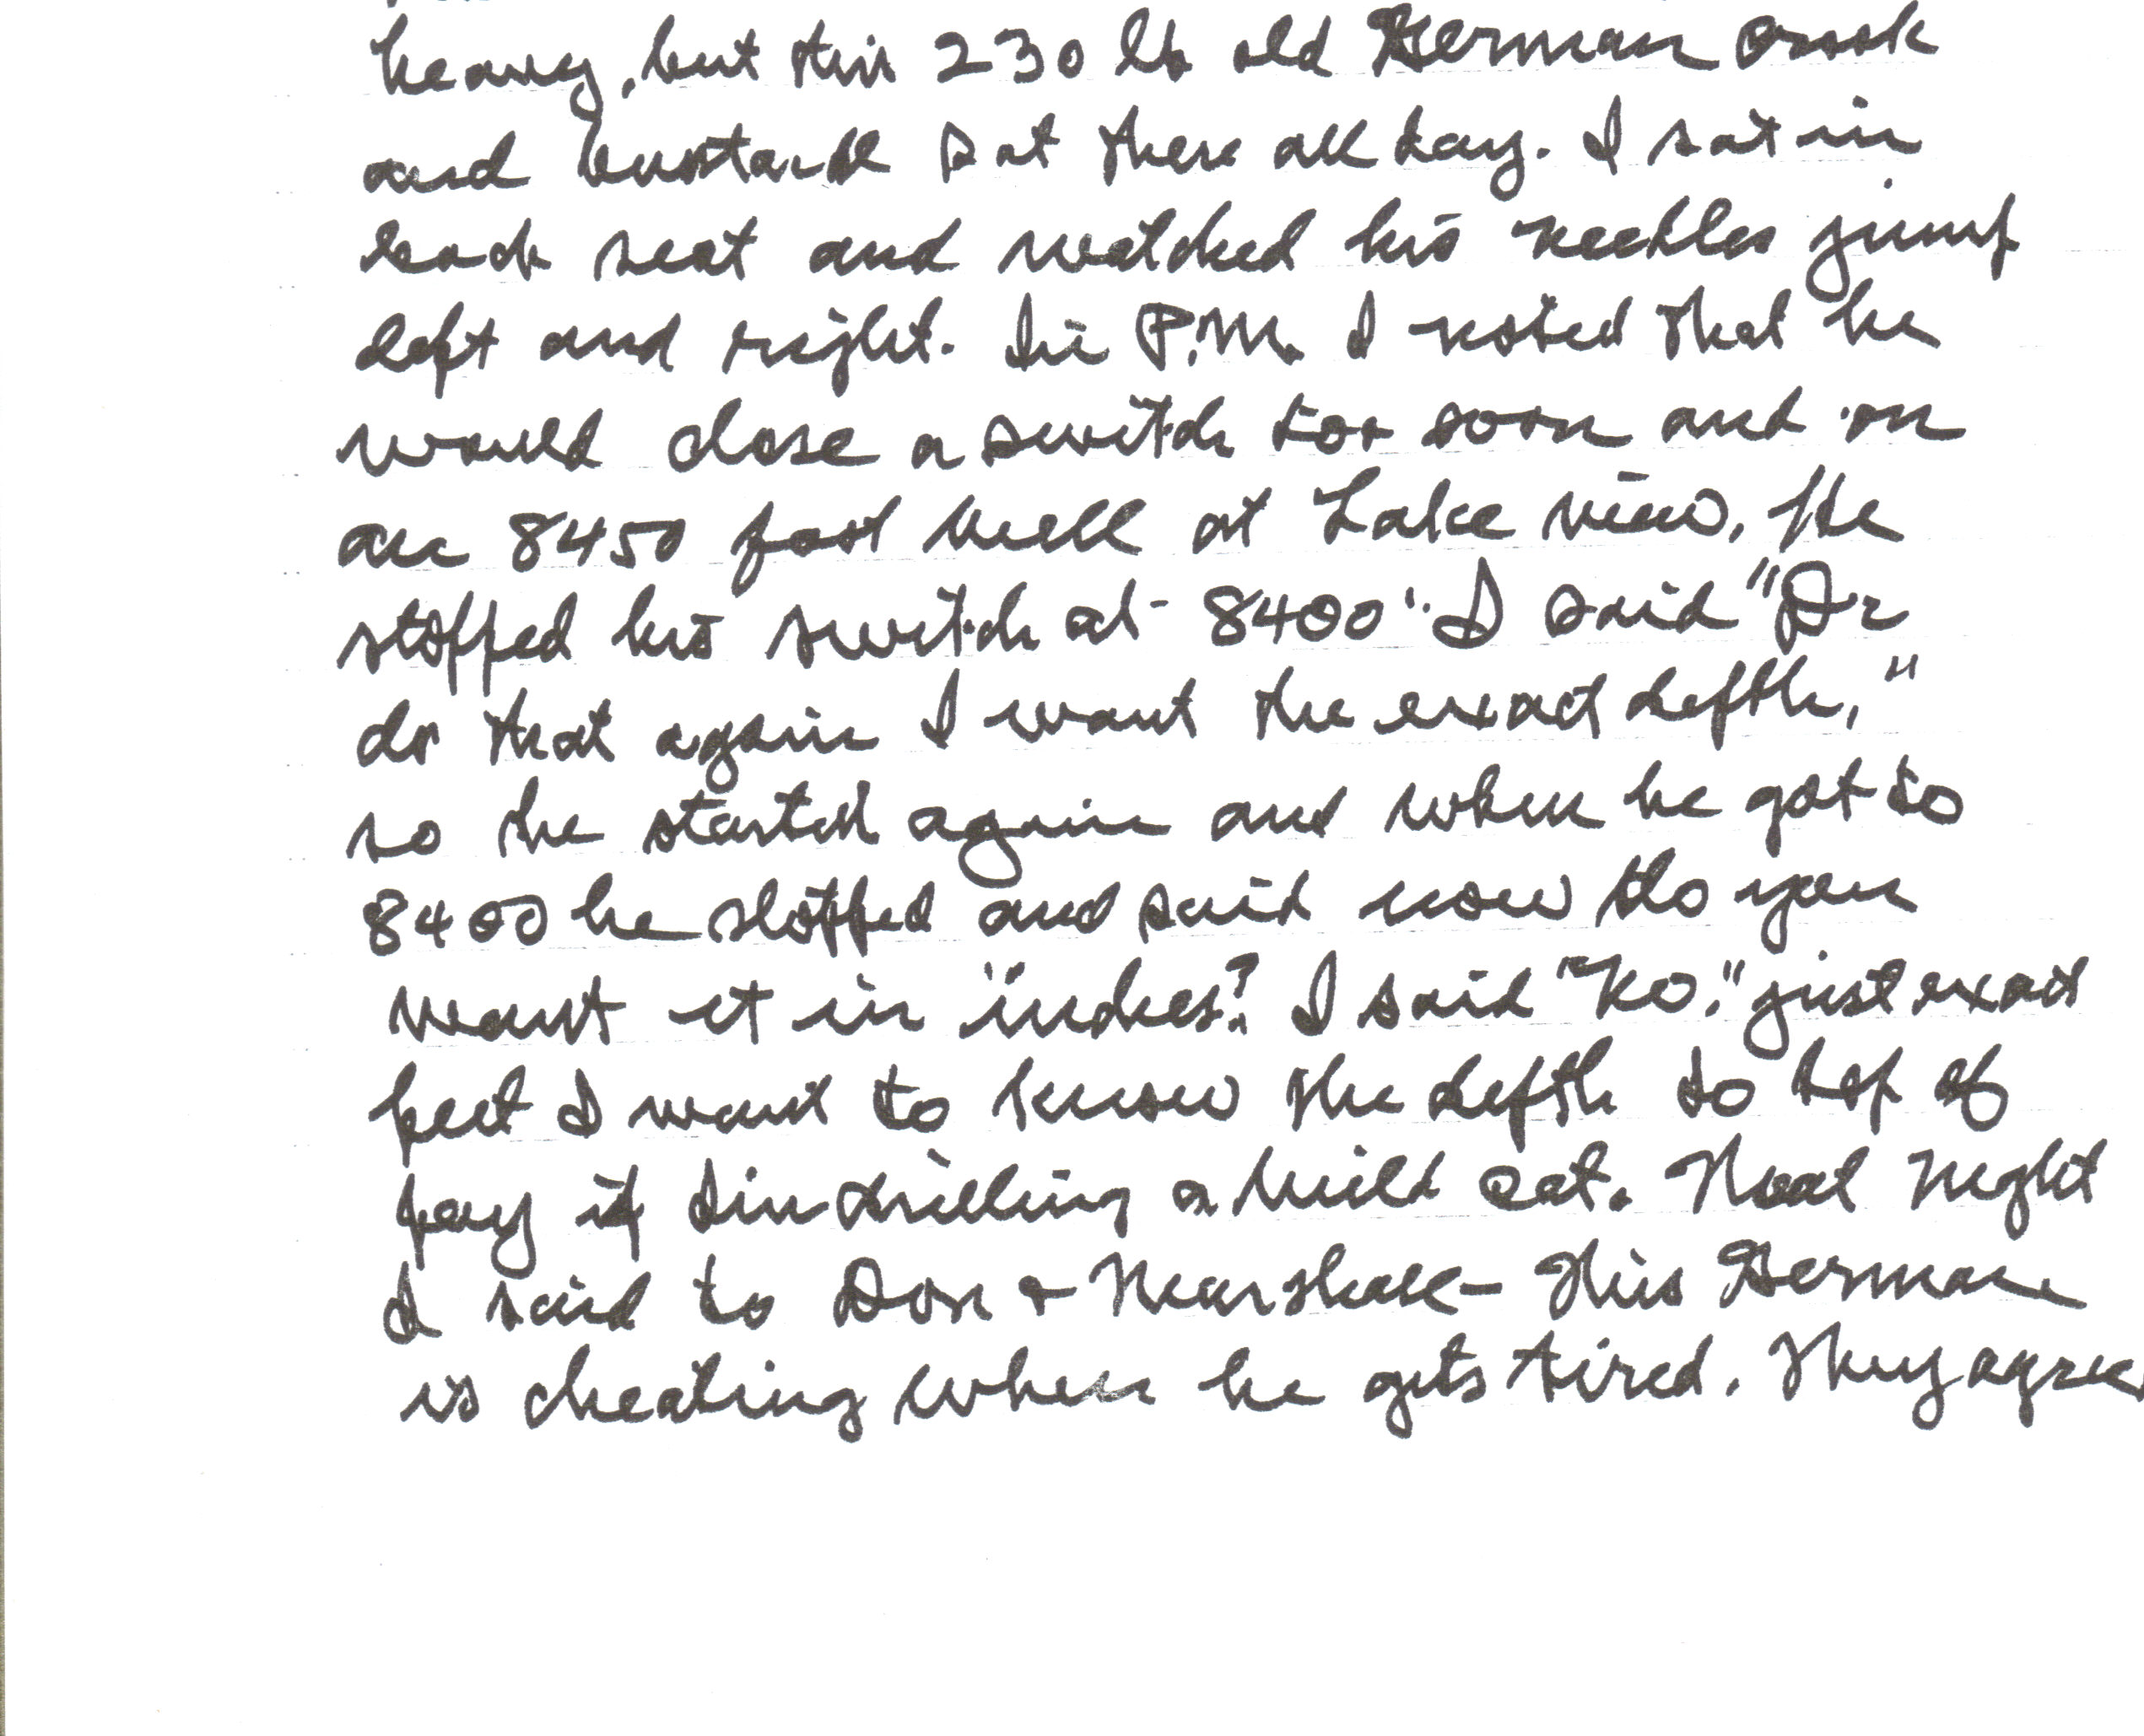 heavy, but this 230 lb old German crook
and bustard sat there all day. I sat in
back seat and watched his needles jump
left and right. In P.M. I noted that he
would close a switch too soon and on
an 8450 foot well at Lake view, He
stopped his switch at 8400'. I said "Dr
do that again I want the exact depth,"
so he started again and when he got to
8400 he stopped and said now do you
want it in "inches? I said "No." just exact
feet I want to know the depth to top of
pay if I'm drilling a wild cat. That night
I said to Don & Marshall - This German
is cheating when he gets tired. They agree